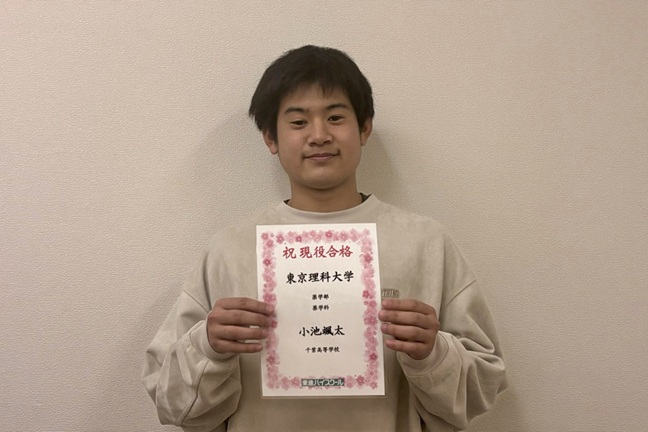 祝 現役合格
東京理科大学
薬学部
薬学科
小池颯太
千葉高等学校
東進ハイスクール